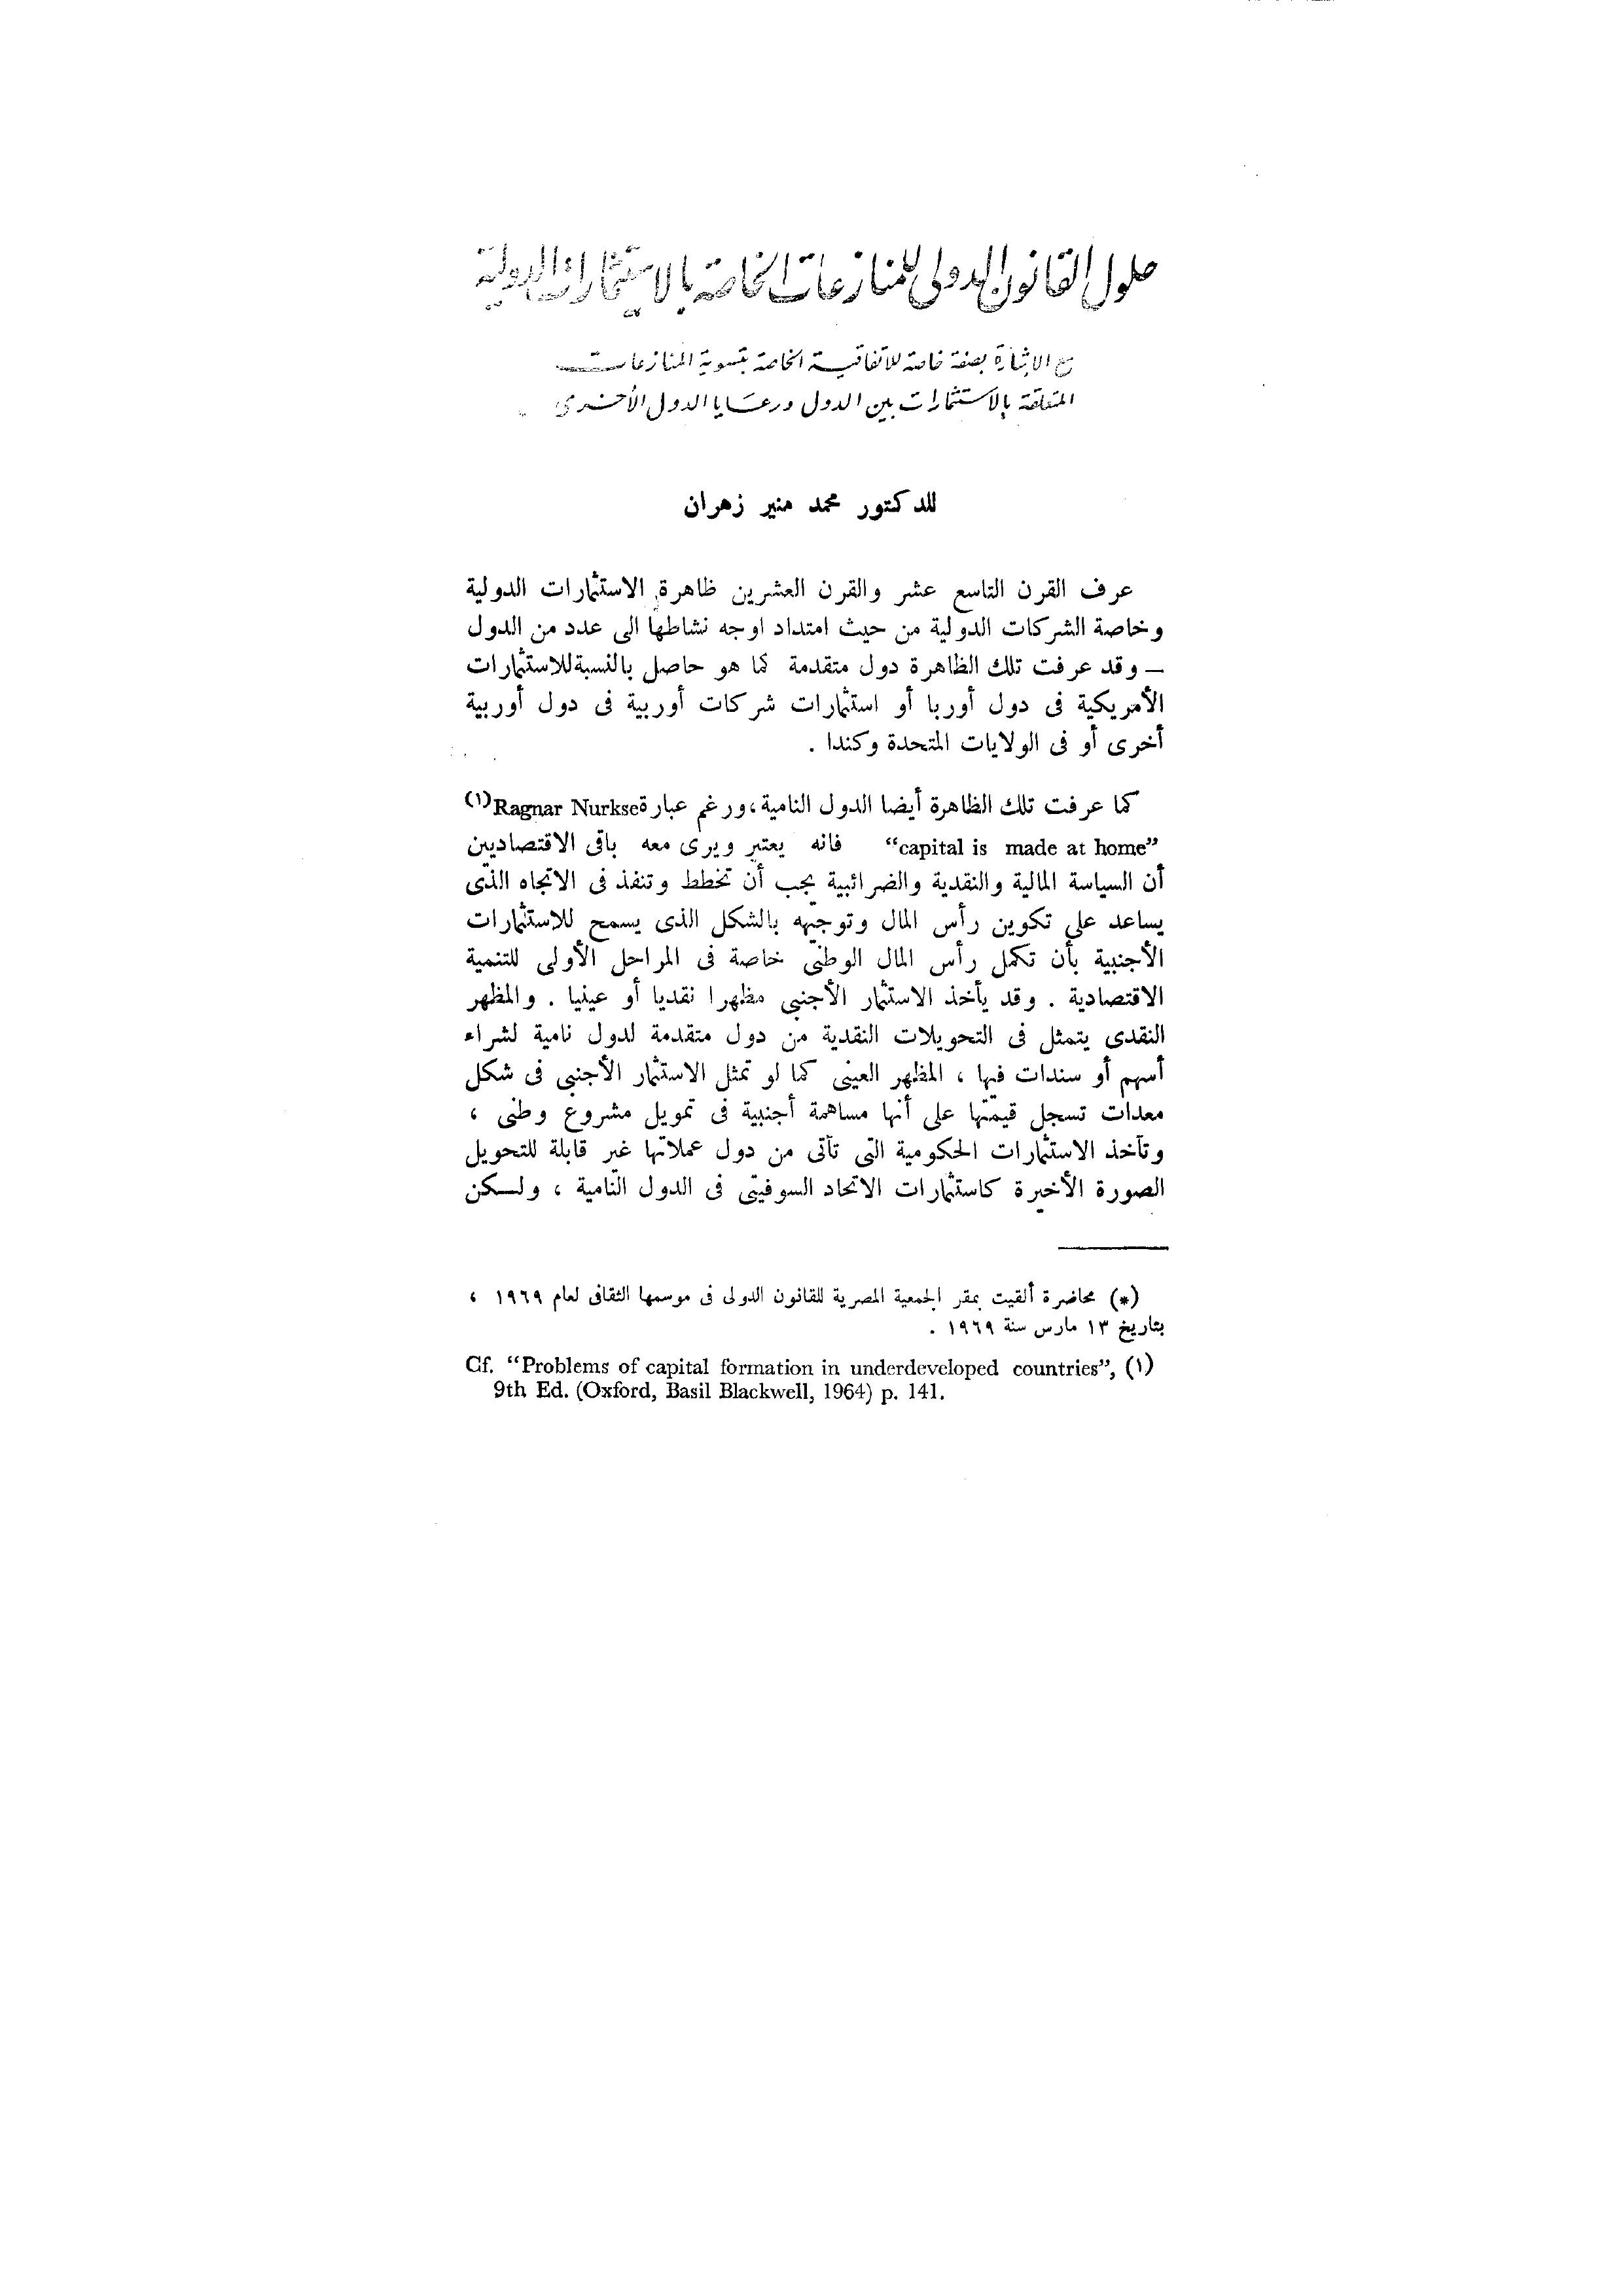 حلول القانون الدولى للمنازعات الخاصة بالاستثمارات الدولية
مع الإشارة بصفة خاصة للاتفاقية الخاصة بتسوية المنازعات
المتعلقة بالاستثمارات بين الدول ورعايا الدول الأخرى
للدكتور محمد منير زهران
عرف القرن التاسع عشر والقرن العشرين ظاهرة الاستثمارات الدولية
وخاصة الشركات الدولية من حيث امتداد اوجه نشاطها الى عدد من الدول
— وقد عرفت تلك الظاهرة دول متقدمة كما هو حاصل بالنسبة للاستثمارات
الأمريكية فى دول أوربا أو استثمارات شركات أوربية فى دول أوربية
أخرى أو فى الولايات المتحدة وكندا .
كما عرفت تلك الظاهرة أيضا الدول النامية، ورغم عبارة Ragnar Nurkse (١)
“capital is made at home” فانه يعتبر ويرى معه باقى الاقتصاديين
أن السياسة المالية والنقدية والضرائبية يجب أن تخطط وتنفذ فى الاتجاه الذى
يساعد على تكوين رأس المال وتوجيهه بالشكل الذى يسمح للاستثمارات
الأجنبية بأن تكمل رأس المال الوطنى خاصة فى المراحل الأولى للتنمية
الاقتصادية . وقد يأخذ الاستثمار الأجنبى مظهرا نقديا أو عينيا . والمظهر
النقدى يتمثل فى التحويلات النقدية من دول متقدمة لدول نامية لشراء
أسهم أو سندات فيها ، المظهر العينى كما لو تمثل الاستثمار الأجنبى فى شكل
معدات تسجل قيمتها على أنها مساهمة أجنبية فى تمويل مشروع وطنى ،
وتأخذ الاستثمارات الحكومية التى تأتى من دول عملاتها غير قابلة للتحويل
الصورة الأخيرة كاستثمارات الاتحاد السوفيتى فى الدول النامية ، ولكن
(*) محاضرة ألقيت بمقر الجمعية المصرية للقانون الدولى فى موسمها الثقافى لعام ١٩٦٩ ،
بتاريخ ١٣ مارس سنة ١٩٦٩ .
Cf. “Problems of capital formation in underdeveloped countries”, (١)
9th Ed. (Oxford, Basil Blackwell, 1964) p. 141.